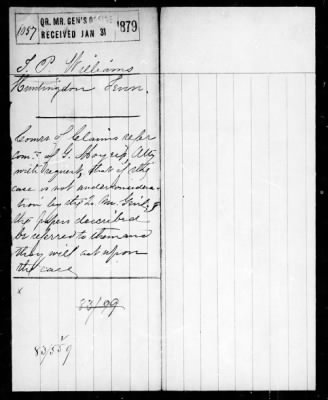 1057
QR. MR. GEN'S OFFICE
RECEIVED JAN 31
1879
T. P. Williams
Huntingdon Tenn.
Comrs of Claims refer
com. of G. Atty
with request, that if this
case is not under considera-
tion by the Qr. Mr. Genl, &
the papers described
be referred to them and
they will act upon
the case
x
83/09
83/559